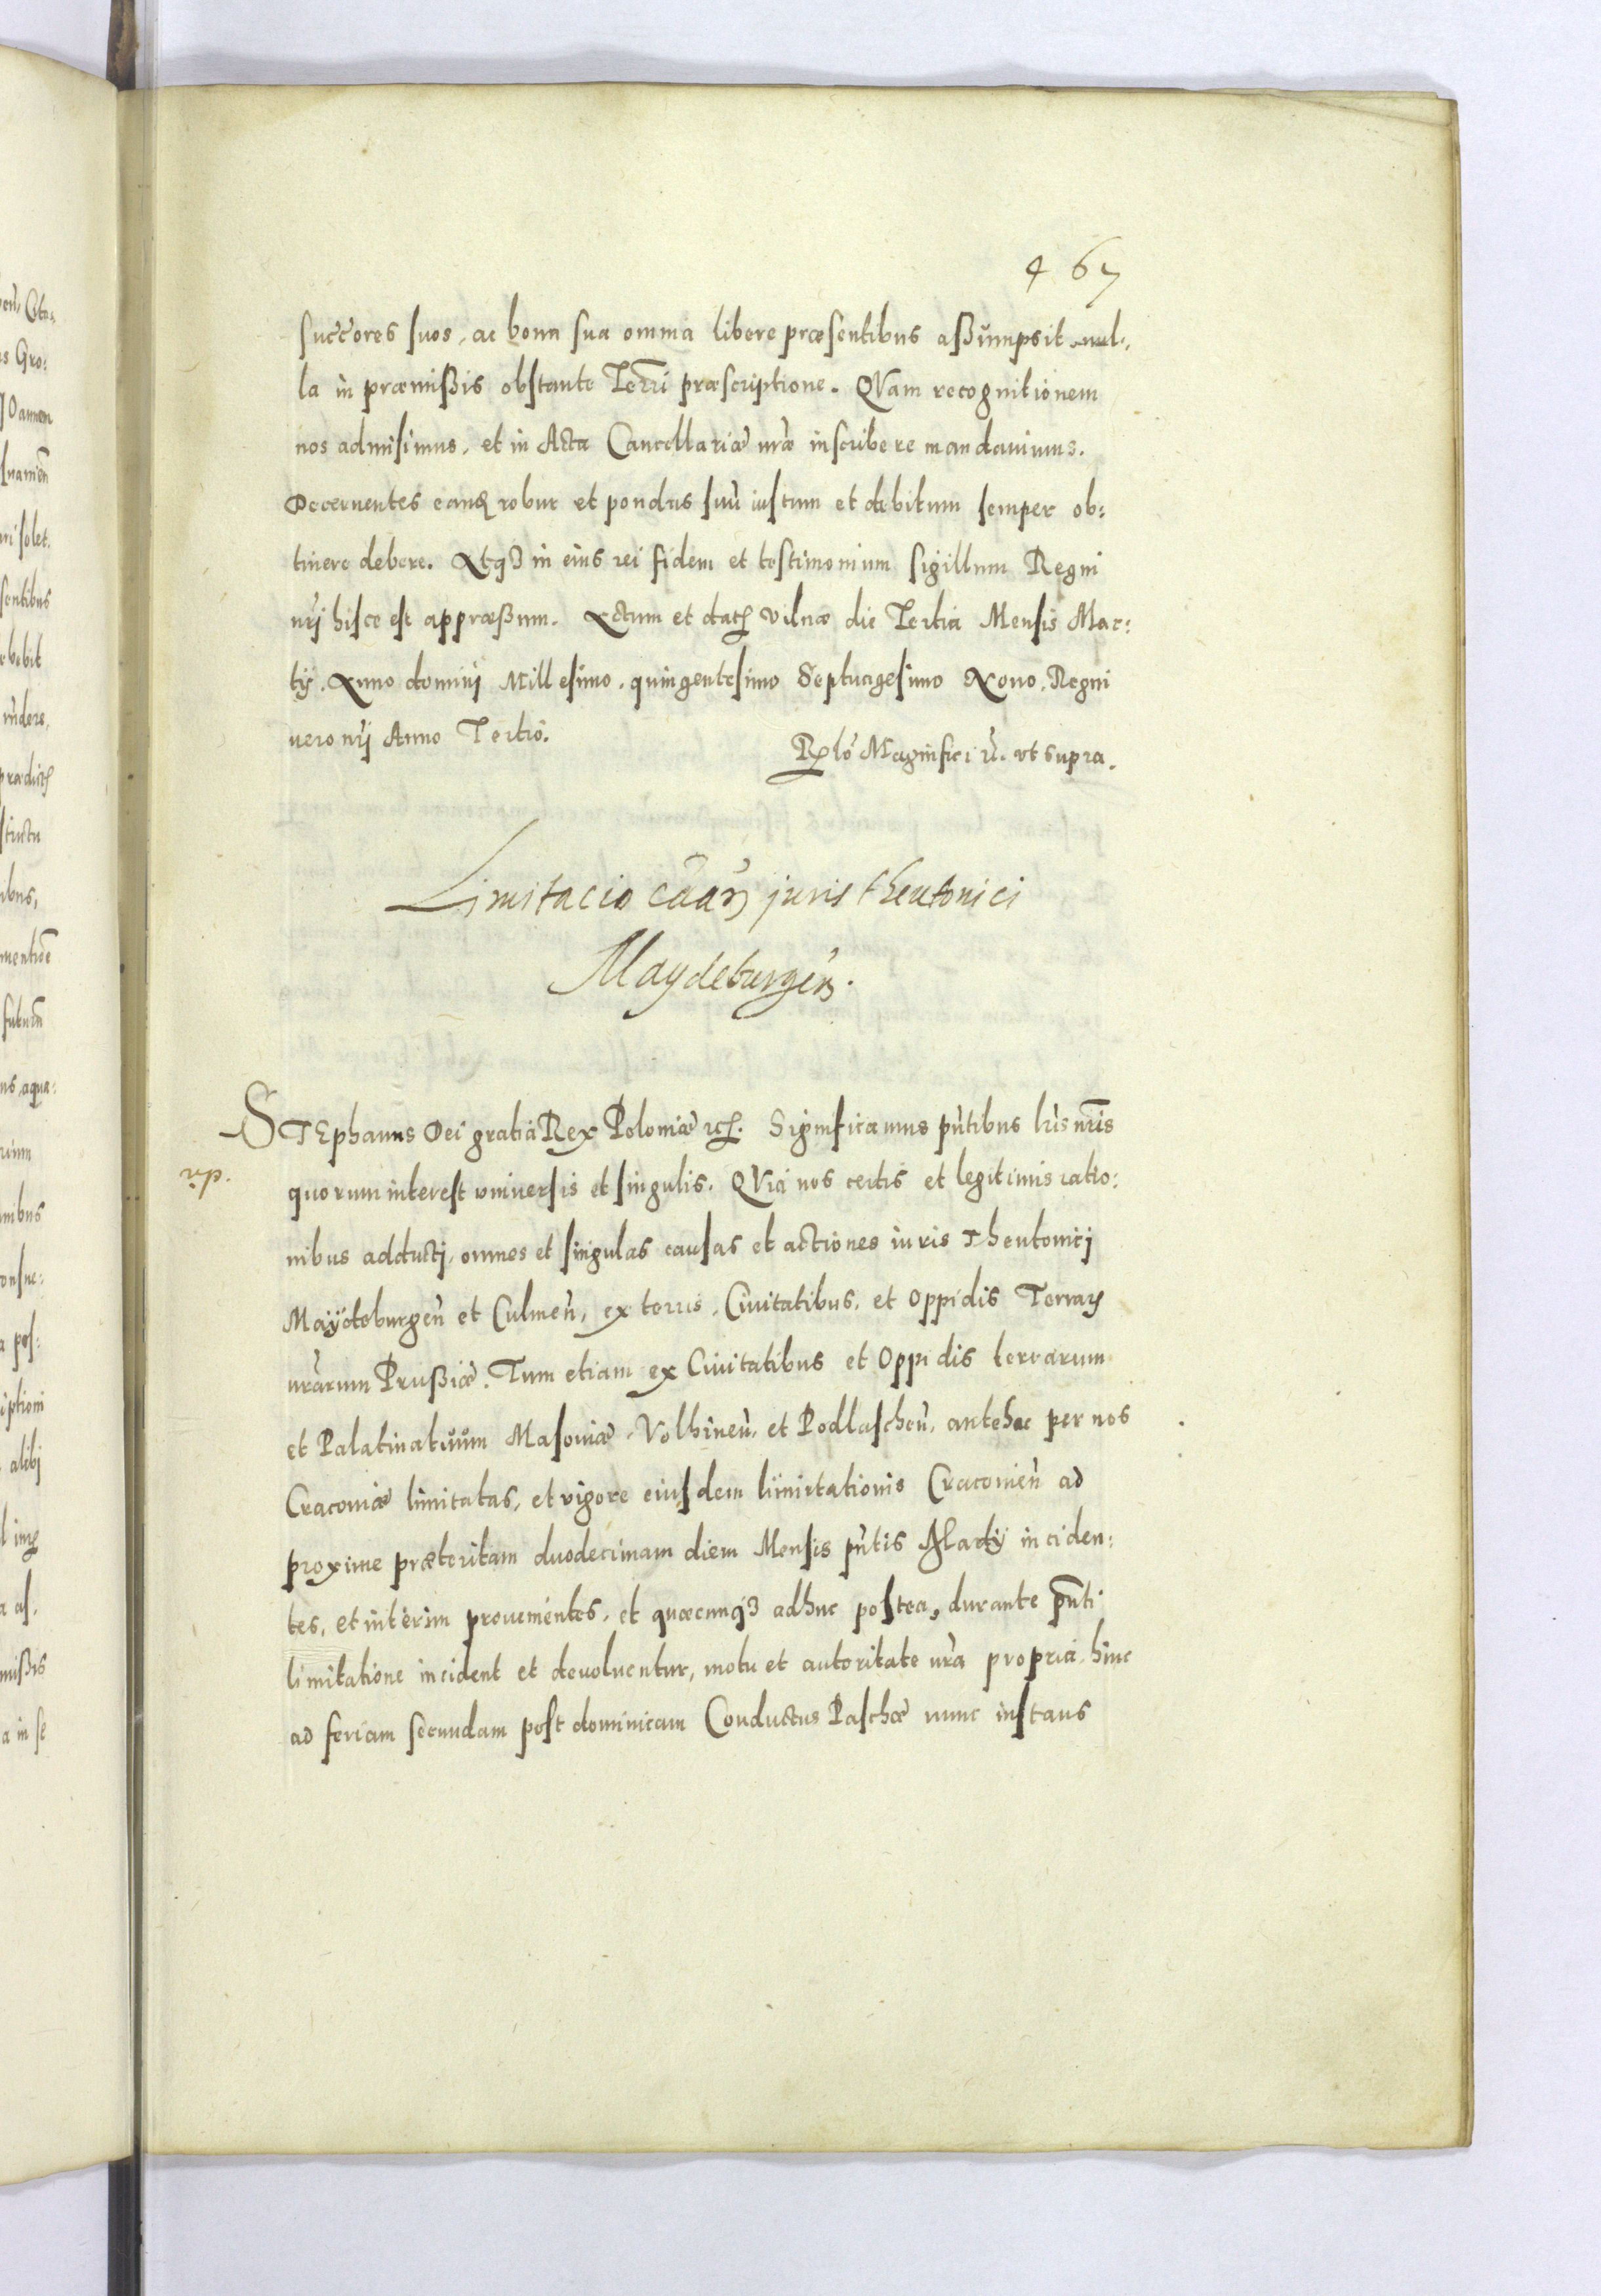 467
succores suos, ac bona sua omnia libere præsentibus aßumpsit nul-
la in præmißis obstante Terri præscriptione. QVam recognitionem
nos admisimus, et in Acta Cancellariæ nræ inscribere mandauimus.
Decernentes eamq robur et pondus suu iustum et debitum semper ob:
tinere debere. Atq3 in eius rei fidem et testimonium sigillum Regni
nrj hisce est appræßum. Actum et dat Vilnæ die Tertia Mensis Mar:
tÿ. Anno dominj Millesimo, quingentesimo Septuagesimo Nono, Regni
uero nrj Anno Tertio.
Rlo Magnifici r. vt supra.
Limitacio caar juris theutonici
Maydeburgen.
STEphanus Dei gratia Rex Poloniæ etc. Significamus pntibus lris nris
quorum interest vniuersis et singulis. QVia nos certis et legitimis ratio:
nibus adductj, omnes et singulas causas et actiones iuris Theutonicj
Maÿdeburgen et Culmen, ex terris, Ciuitatibus, et Oppidis Terrar
nrarum Prußiæ. Tum etiam ex Ciuitatibus et Oppidis terrarum
et Palatinatuum Masouiæ, Volhinen, et Podlaschen, antehac per nos
Cracouiæ limitatas, et vigore eiusdem limitationis Cracouien ad
proxime præteritam duodecimam diem Mensis pntis Martÿ inciden:
tes, et interim prouenientes, et quæcunq3 adhuc postea, durante pnti
limitatione incident et deuoluentur, motu et autoritate nra propria, hinc
ad feriam secundam post dominicam Conductus Paschæ nunc instans